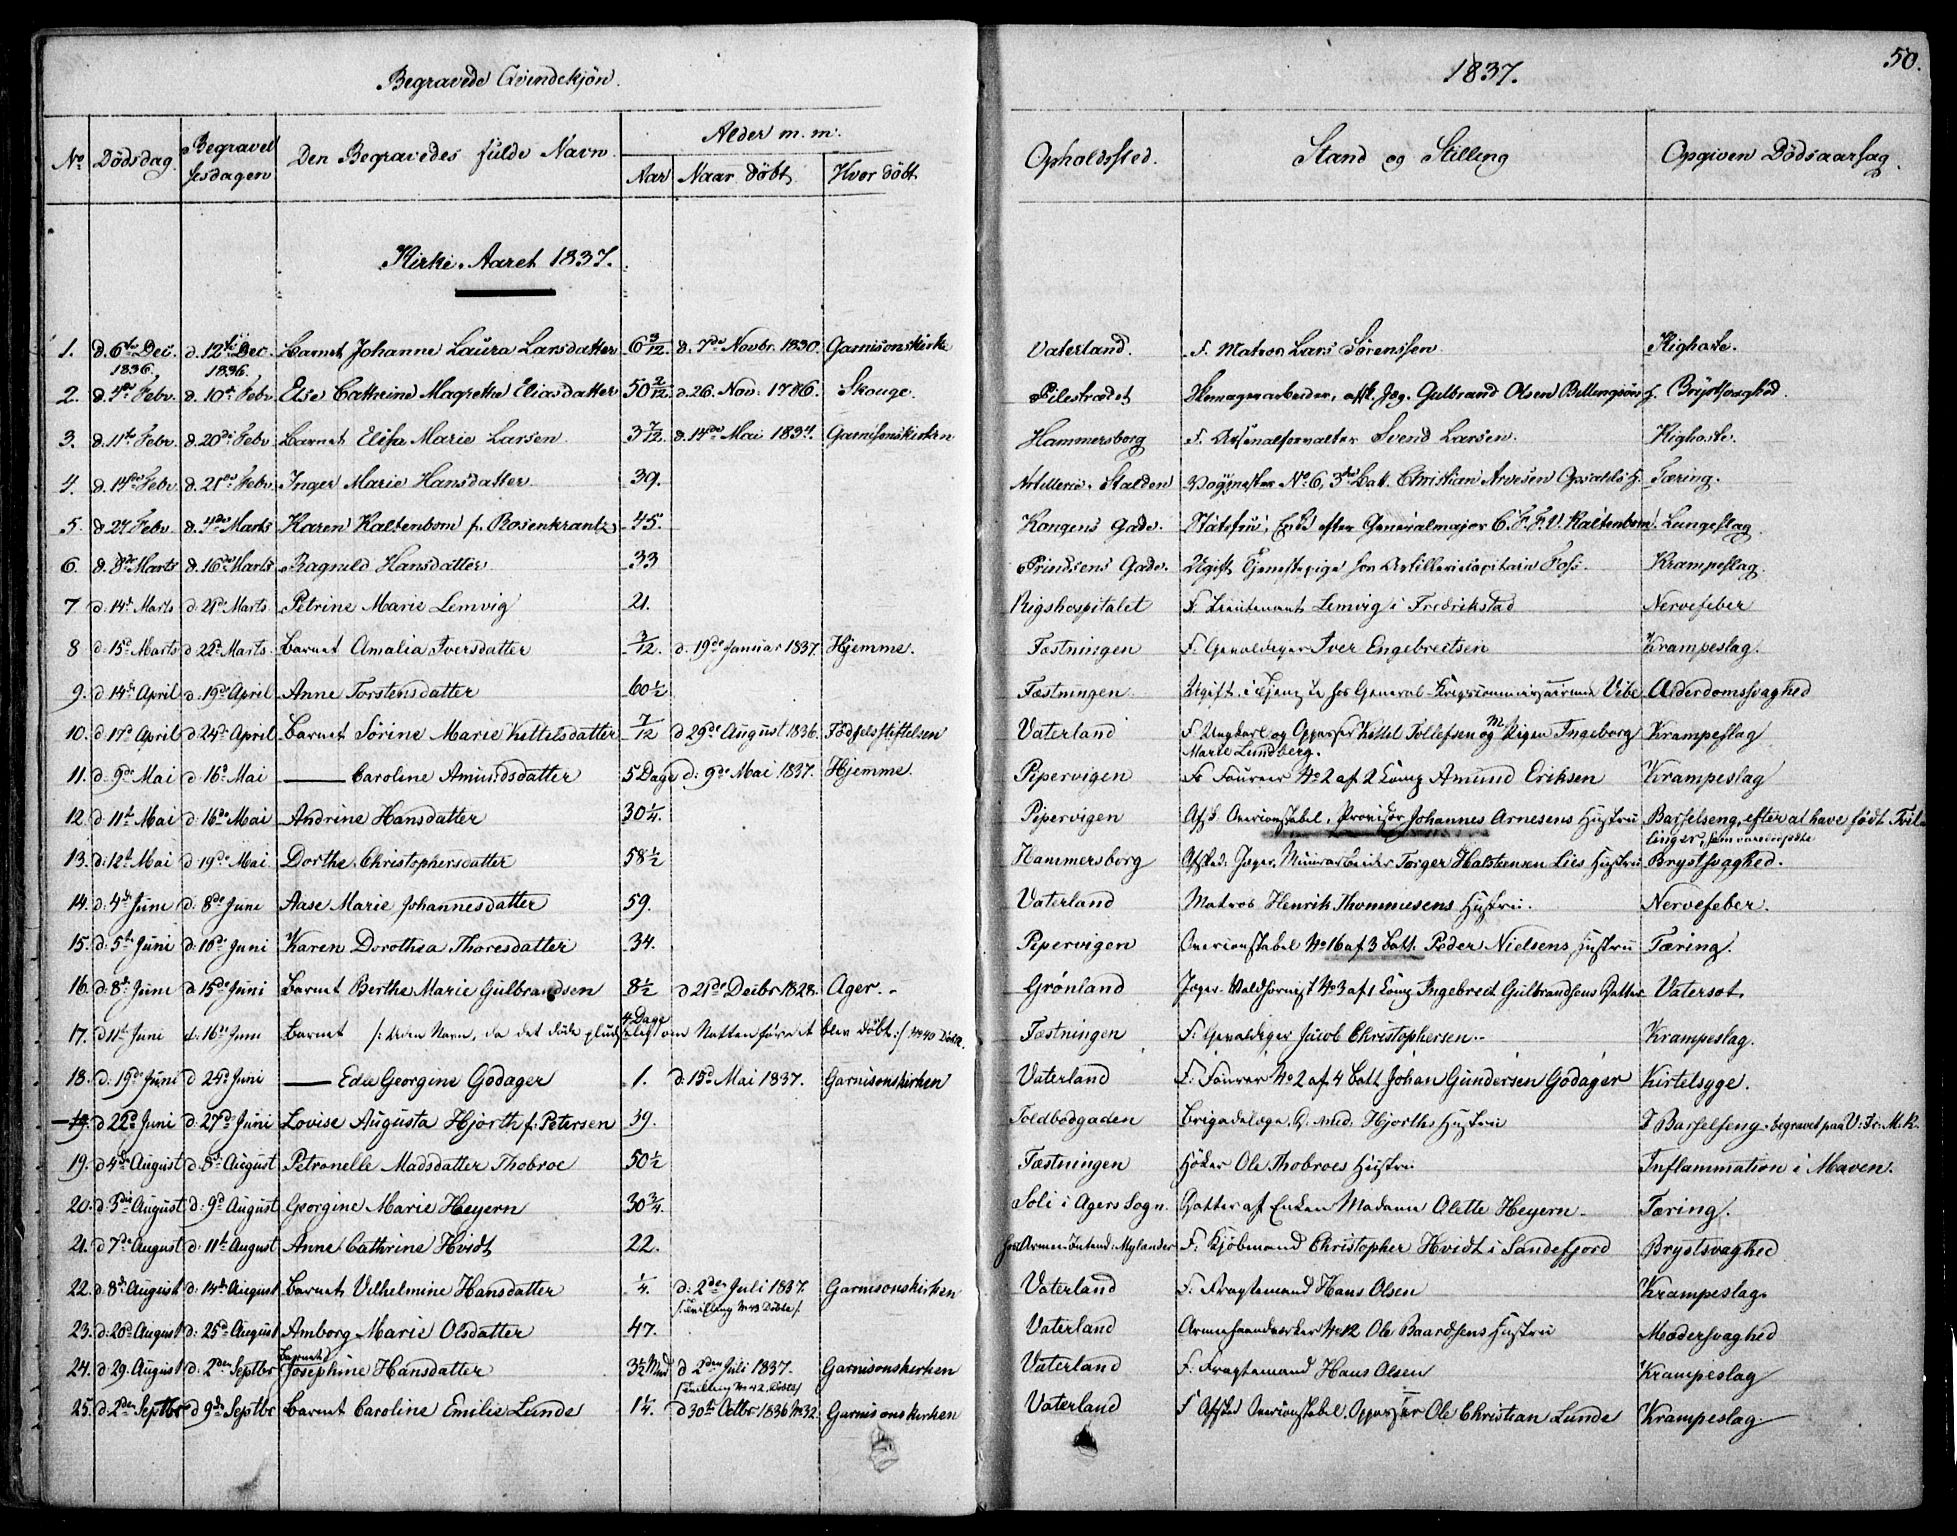 Begravede Qvindekjøn.
1837.
50.
No Dödsdag. Begravelsesdagen Den Begravedes fulde Navn Alder m. m. Aar Naar döbt Hvor döbt Opholdssted. Stand og Stilling Opgiven Dödsaarsag.
Kirke-Aaret 1837.
1. d. 6te Dec. 1836. d. 12te Dec. 1836. Barnet Johanne Laura Larsdatter 6 3/12. d. 7de Novbr. 1830. Garnisonskirke Vaterland. F. Matros Lars Sörenssen Kighoste.
2. d. 1ste Febr. d. 10de Febr. Else Cathrine Magrethe Eliasdatter 50 2/12. d. 26. Nov. 1786. Skouge. Pilestrædet Skomagerarbeider, afsk. Jæg. Gulbrand Olsen H. Brystsvaghed.
3. d. 11te Febr. d. 20de Febr. Barnet Elisa Marie Larsen 3 7/12. d. 14de Mai 1834. Garnisonskirken Hammersborg F. Arsenalforvalter Svend Larsen. Kighoste.
4. d. 14de Febr. d. 21de Febr. Inger Marie Hansdatter 39. Artilleri-Stalden No 6, 3die Batt. Christian Arvesen Opsahls H. Tæring.
5. d. 27 Febr. d. 4de Marts Karen Kaltenbom f. Rosenkrantz 45. Kongens Gade. Enke efter Generalmajor Kaltenbom. Lungeslag.
6. d. 8de Marts d. 16de Marts Ragnild Hansdatter 33 Prindsens Gade. Ugift Tjenestepige hos Artilleriecapitain Foss. Krampeslag.
7 d. 14de Marts d. 21de Marts Petrine Marie Lemvig 21. Rigshospitalet F. Lieutenant Lemvig i Fredrikstad Nervefeber
8 d: 15de Marts d 22de Marts Barnet Amalia Iversdatter 3/12. d. 19de Januar 1837. Hjemme. Fæstningen F. Gevaldiger Iver Engebretsen Krampeslag.
9. d 14de April d. 19de April Anne Torstensdatter 60 1/2 Fæstningen Ugift. i Tjeneste hos General-Krigscommissairinde Vibe Alderdomssvaghed
10. d 17de April d 24de April Barnet Sörine Marie Kittelsdatter 7/12 d 29de August 1836. Födselsstiftelsen Vaterland F. Ungkarl og Oppasser Kittel Tollefsen og Pigen Ingeborg Krampeslag
Marie Lundberg.
11. d. 9de Mai d 16de Mai —— Caroline Amundsdatter 5 Dage d: 9de Mai 1837. Hjemme. Pepervigen F. Foureer No 2 af 2 Comp Amund Eriksen Krampeslag
12. d 11te Mai d: 16de Mai Andrine Hansdatter 30 1/4. Pipervigen Afsk. Overconstabel, Provisor Johannes Arnesens Hustru Barselseng, efter at have födt Tvil-
linger, som vare dödfödte
13. d: 12te Mai d 19de Mai Dorthe Christophersdatter 58 1/2 Hammersborg Afsked: Jæger, Muurarbeider Torger Halstensen Lies Hustru Brystsvaghed.
14. d: 4de Juni d: 8de Juni Aase Marie Johannesdatter 59. Vaterland Matros Henrik Thommesens Hustru. Nervefeber.
15. d: 5te Juni d: 10de Juni Karen Dorothea Thoresdatter 34. Pepervigen Overconstabel No 16 af 3 Batt. Peder Nielsens Hustru Tæring.
16. d: 8de Juni d 15de Juni Barnet Berthe Marie Gulbrandsen 8 1/2 d 21de Decbr 1828. Ager. Grönland Jæger-Waldhornist No 3 af 1 Comp Ingebret Gulbrandsens Datter Vatersot.
17. d 11te Juni d: 16de Juni Barnet /: uden Navn, da det döde pludselig om Natten förend det blev döbt :/ No 40 Döbte. 4 Dage Fæstningen F. Gevaldiger Jacob Christophersen. Krampeslag.
18. d: 19de Juni d 24de Juni —— Edle Georgine Godager 1. d: 15de Mai 1837. Garnisonskirken Vaterland F. Fourer No 2 af 4 Batt Johan Gundersen Godager Kirtelsyge.
19. d 22de Juni d: 27de Juni Lovise Augusta Hjorth f. Petersen 39. Toldbodgaden Brigadelæge, Hjorths Hustru I Barselseng begravet paa V: Fr: M. k.
19. d 4de August d 8de August Petronelle Madsdatter Thobroe 50 1/2 Fæstningen Höker Ole Thobroes Hustru Inflammation i Maven.
20. d: 5te August d: 9de August Georgine Marie Heyern 30 3/4. Soli i Agers Sogn. Datter af Enken Madame Olette Heyern. Tæring.
21. d 7de August d: 11te August Anne Cathrine Hvidt 22. hos Mylander F. Kjöbmand Christopher Hvidt i Sandefjord Brystsvaghed
22. d: 8de August d: 14de August Barnet Vilhelmine Hansdatter 1/4. d: 2den Juli 1837. Garnisonskirken Vaterland F. Fragtemand Hans Olsen Krampeslag.
/: Tvilling No 43 Döbte :/
23. d: 20de August d: 25de August Amborg Marie Olsdatter 47. Vaterland No 12 Ole Baardsens Hustru Modersvaghed
24. d 29. August d: 2den Septbr Barnet Josephine Hansdatter 3 1/2 Mnd d 2den Juli 1837. Garnisonskirken Vaterland F. Fragtemand Hans Olsen Krampeslag
/: Tvilling No 42 Döbte :/
25. d 2den Septbr d 9de Septbr Barnet Caroline Emilie Lunde 1 1/4. d 30te Octbr 1836 No 32. Garnisonskirken Vaterland F. Afsked Overconstabel, Oppasser Ole Christian Lunde Krampeslag